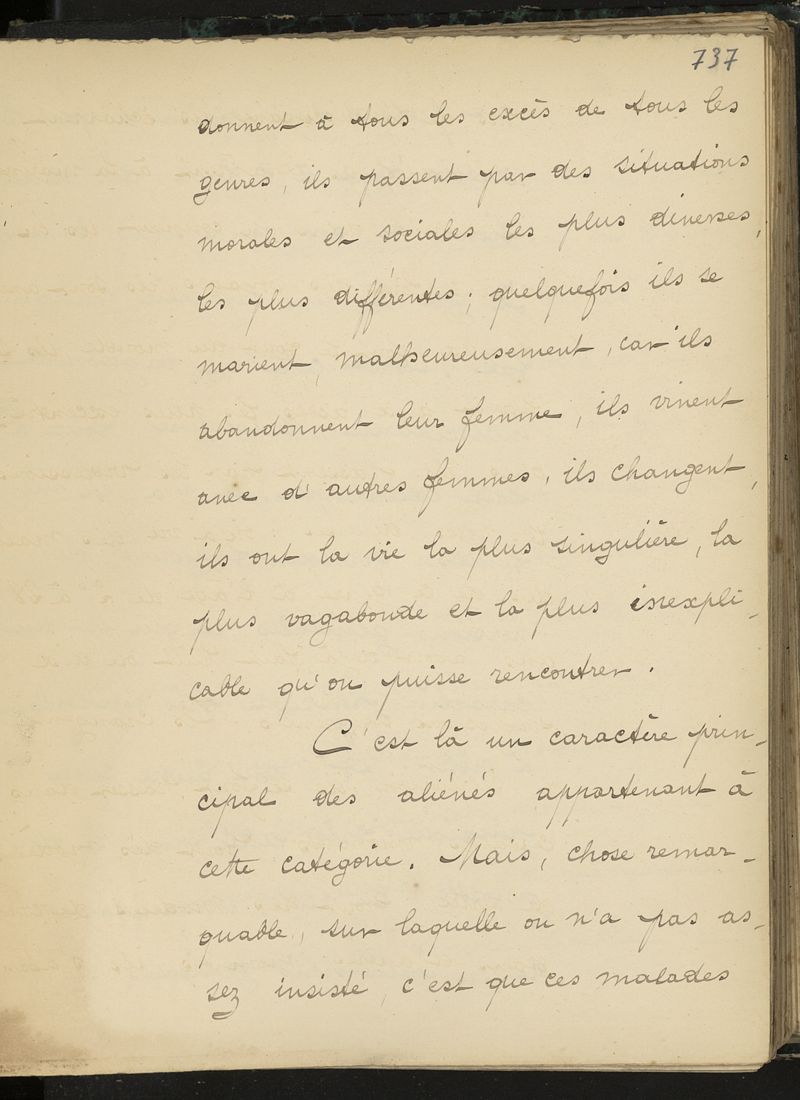 737
donnent à tous les excès de tous les
genres, ils passent par des situations
morales et sociales les plus diverses,
les plus différentes ; quelquefois ils se
marient, malheureusement, car ils
abandonnent leur femme, ils vivent
avec d'autres femmes, ils changent,
ils ont la vie la plus singulière, la
plus vagabonde et la plus inexpli-
cable qu'on puisse rencontrer.
C'est là un caractère prin-
cipal des aliénés appartenant à
cette catégorie. Mais, chose remar-
quable, sur laquelle on n'a pas as-
sez insisté, c'est que ces malades